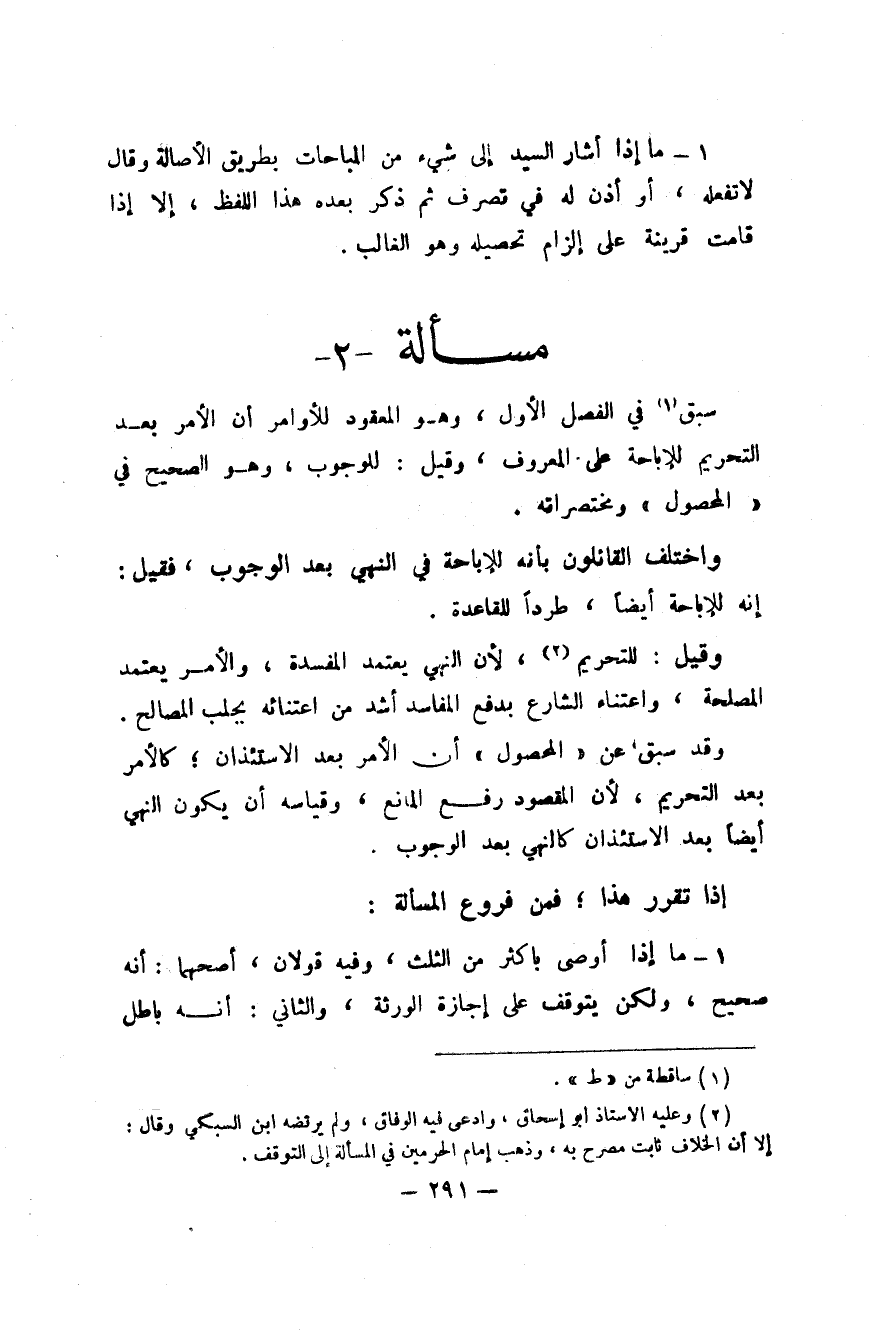 ١ – ما إذا أشار السيد إلى شيء من المباحات بطريق الأصالة وقال
لاتفعله ، أو أذن له في تصرف ثم ذكر بعده هذا اللفظ ، إلا إذا
قامت قرينة على إلزام تحصيله وهو الغالب .
مســـألة -٢-
سبق(١) في الفصل الأول ، وهـو المعقود للأوامر أن الأمر بعـد
التحريم للإباحة على المعروف ، وقيل : للوجوب ، وهـو الصحيح في
« المحصول » ومختصراته .
واختلف القائلون بأنه للإباحة في النهي بعد الوجوب ، فقيل :
إنه للإباحة أيضاً ، طرداً للقاعدة .
وقيل : للتحريم (٢) ، لأن النهي يعتمد المفسدة ، والأمـر يعتمد
المصلحة ، واعتناء الشارع بدفع المفاسد أشد من اعتنائه بجلب المصالح .
وقد سبق عن « المحصول » أن الأمر بعد الاستئذان ؛ كالأمر
بعد التحريم ، لأن المقصود رفـع المانع ، وقياسه أن يكون النهي
أيضاً بعد الاستئذان كالنهي بعد الوجوب .
إذا تقرر هذا ؛ فمن فروع المسألة :
١ – ما إذا أوصى بأكثر من الثلث ، وفيه قولان ، أصحهما : أنه
صحيح ، ولكن يتوقف على إجازة الورثة ، والثاني : أنـــه باطل
(١) ساقطة من « ط » .
(٢) وعليه الاستاذ ابو إسحاق ، وادعى فيه الوفاق ، ولم يرتضه ابن السبكي وقال :
إلا أن الخلاف ثابت مصرح به ، وذهب إمام الحرمين في المسألة إلى التوقف .
– ٢٩١ –